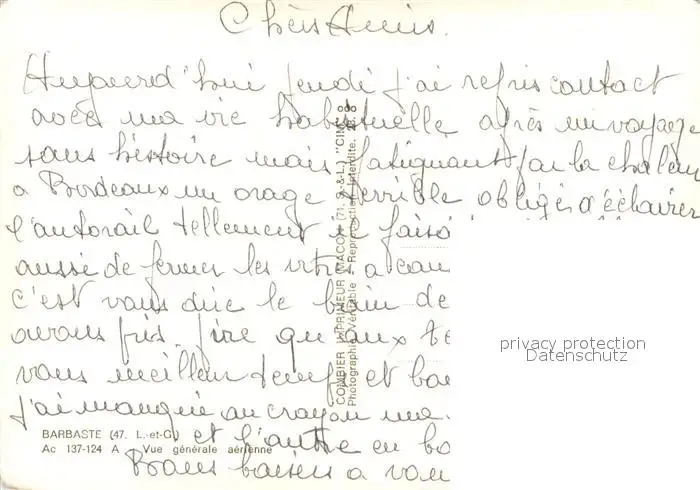 Chers Amis.
Aujourd'hui jeudi j'ai repris contact
avec ma vie habituelle après un voyage
sans histoire mais fatiguant par la chaleur
a Bordeaux un orage terrible obligés d'éclairer
l'autorail tellement il faisa
aussi de fermer les vitres a cau
c'est vous dire le bain de
avons pris. pire qu'aux
vous meilleur temps et
j'ai manqué au crayon
et l'autre en
Bons baisers a vou
BARBASTE (47. L.-et-G.)
Ac 137-124 A Vue générale aérienne
COMBIER IMPRIMEUR MACON (71. S.-&-L.) "CIM"
Photographie Véritable - Reproduction Interdite.
privacy protection
Datenschutz